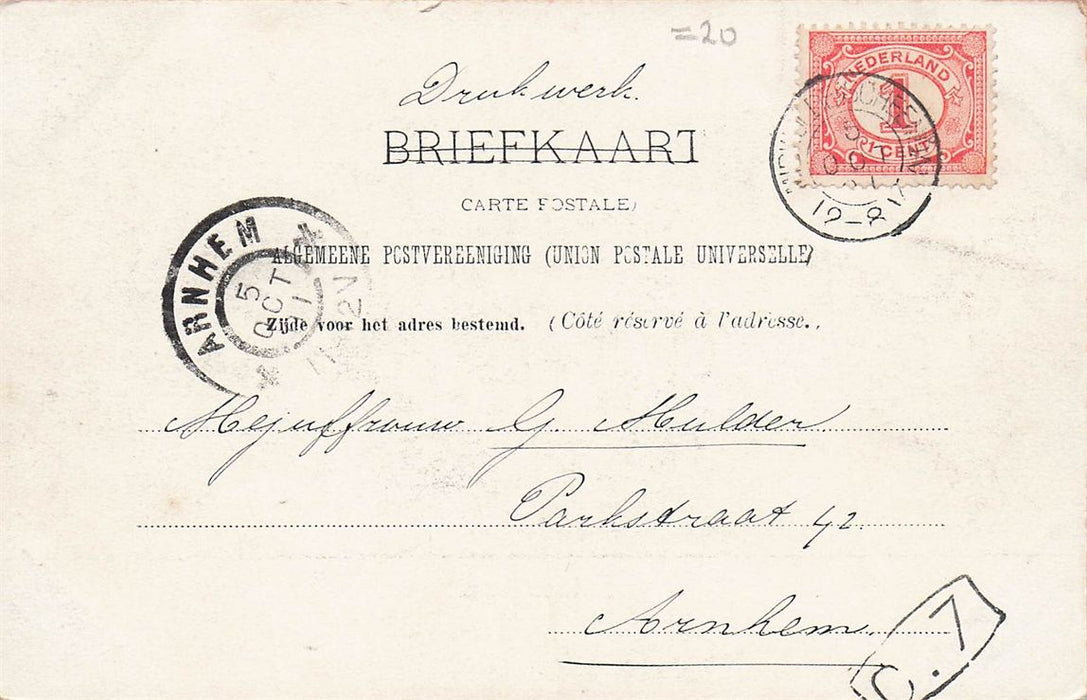 =20
Drukwerk.
BRIEFKAART
CARTE POSTALE)
ALGEMEENE POSTVEREENIGING (UNION POSTALE UNIVERSELLE)
Zijde voor het adres bestemd. (Côté réservé à l'adresse.)
NEDERLAND
1
1 CENT
5
OCT
12-8V
ARNHEM
5
OCT
Mejuffrouw G. Mulder
Parkstraat 42.
Arnhem.
C.7